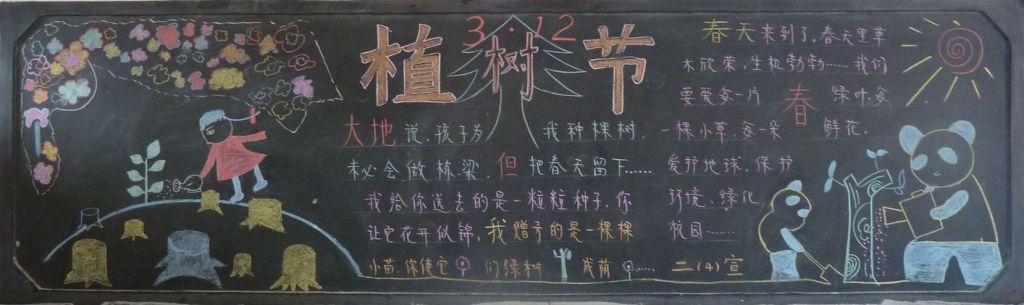 3·12
植树节
大地说，孩子为我种棵树，
未必会做栋梁，但把春天留下……
我给你送去的是一粒粒种子，你
让它花开似锦，我赠予的是一棵棵
小苗，你使它们绿树成荫……
春天来到了，春天里草
木欣荣，生机勃勃……我们
要爱每一片春绿叶，每
一棵小草，每一朵鲜花，
爱护地球，保护
环境，绿化
校园……
二（4）宣